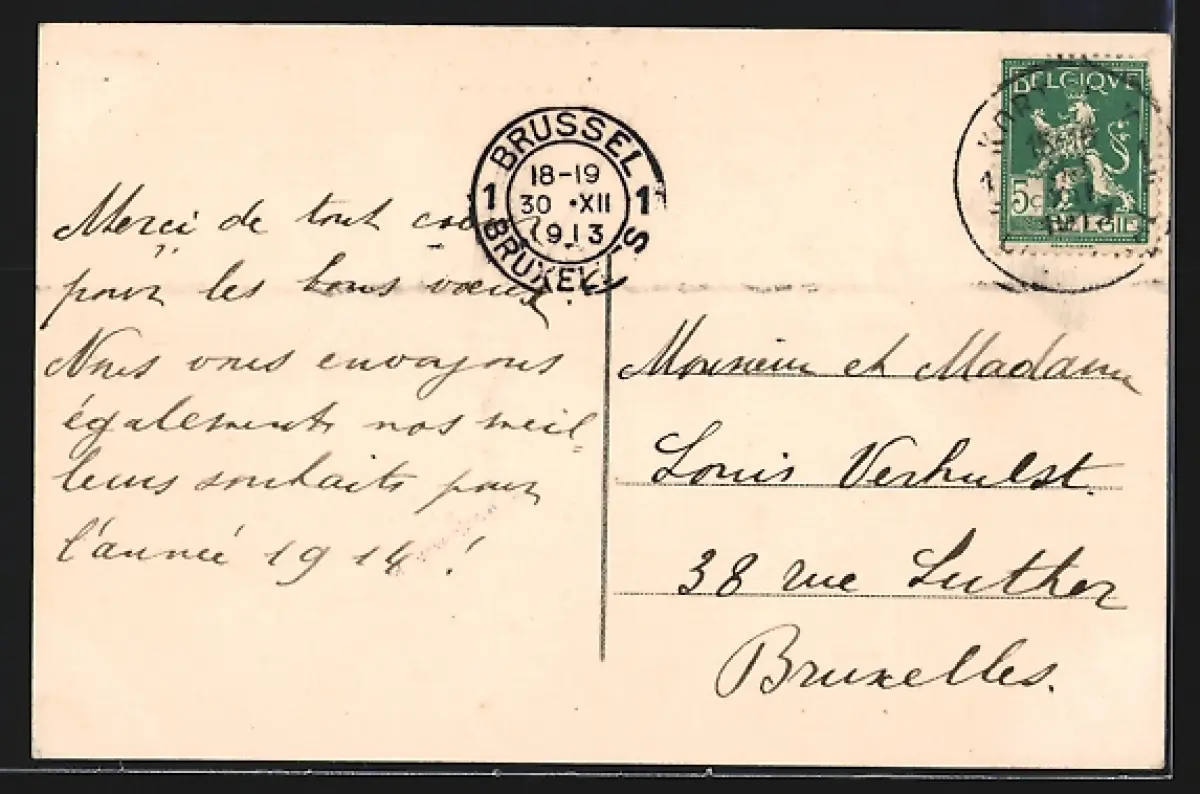 Merci de tout cœur
pour les bons vœux.
Nous vous envoyons
également nos meil=
leurs souhaits pour
l'année 1914 !
BRUSSEL
1 1
18-19
30 •XII
1913
BRUXELLES
BELGIQUE
5c
BELGIË
Monsieur et Madame
Louis Verhulst.
38 rue Luther
Bruxelles.